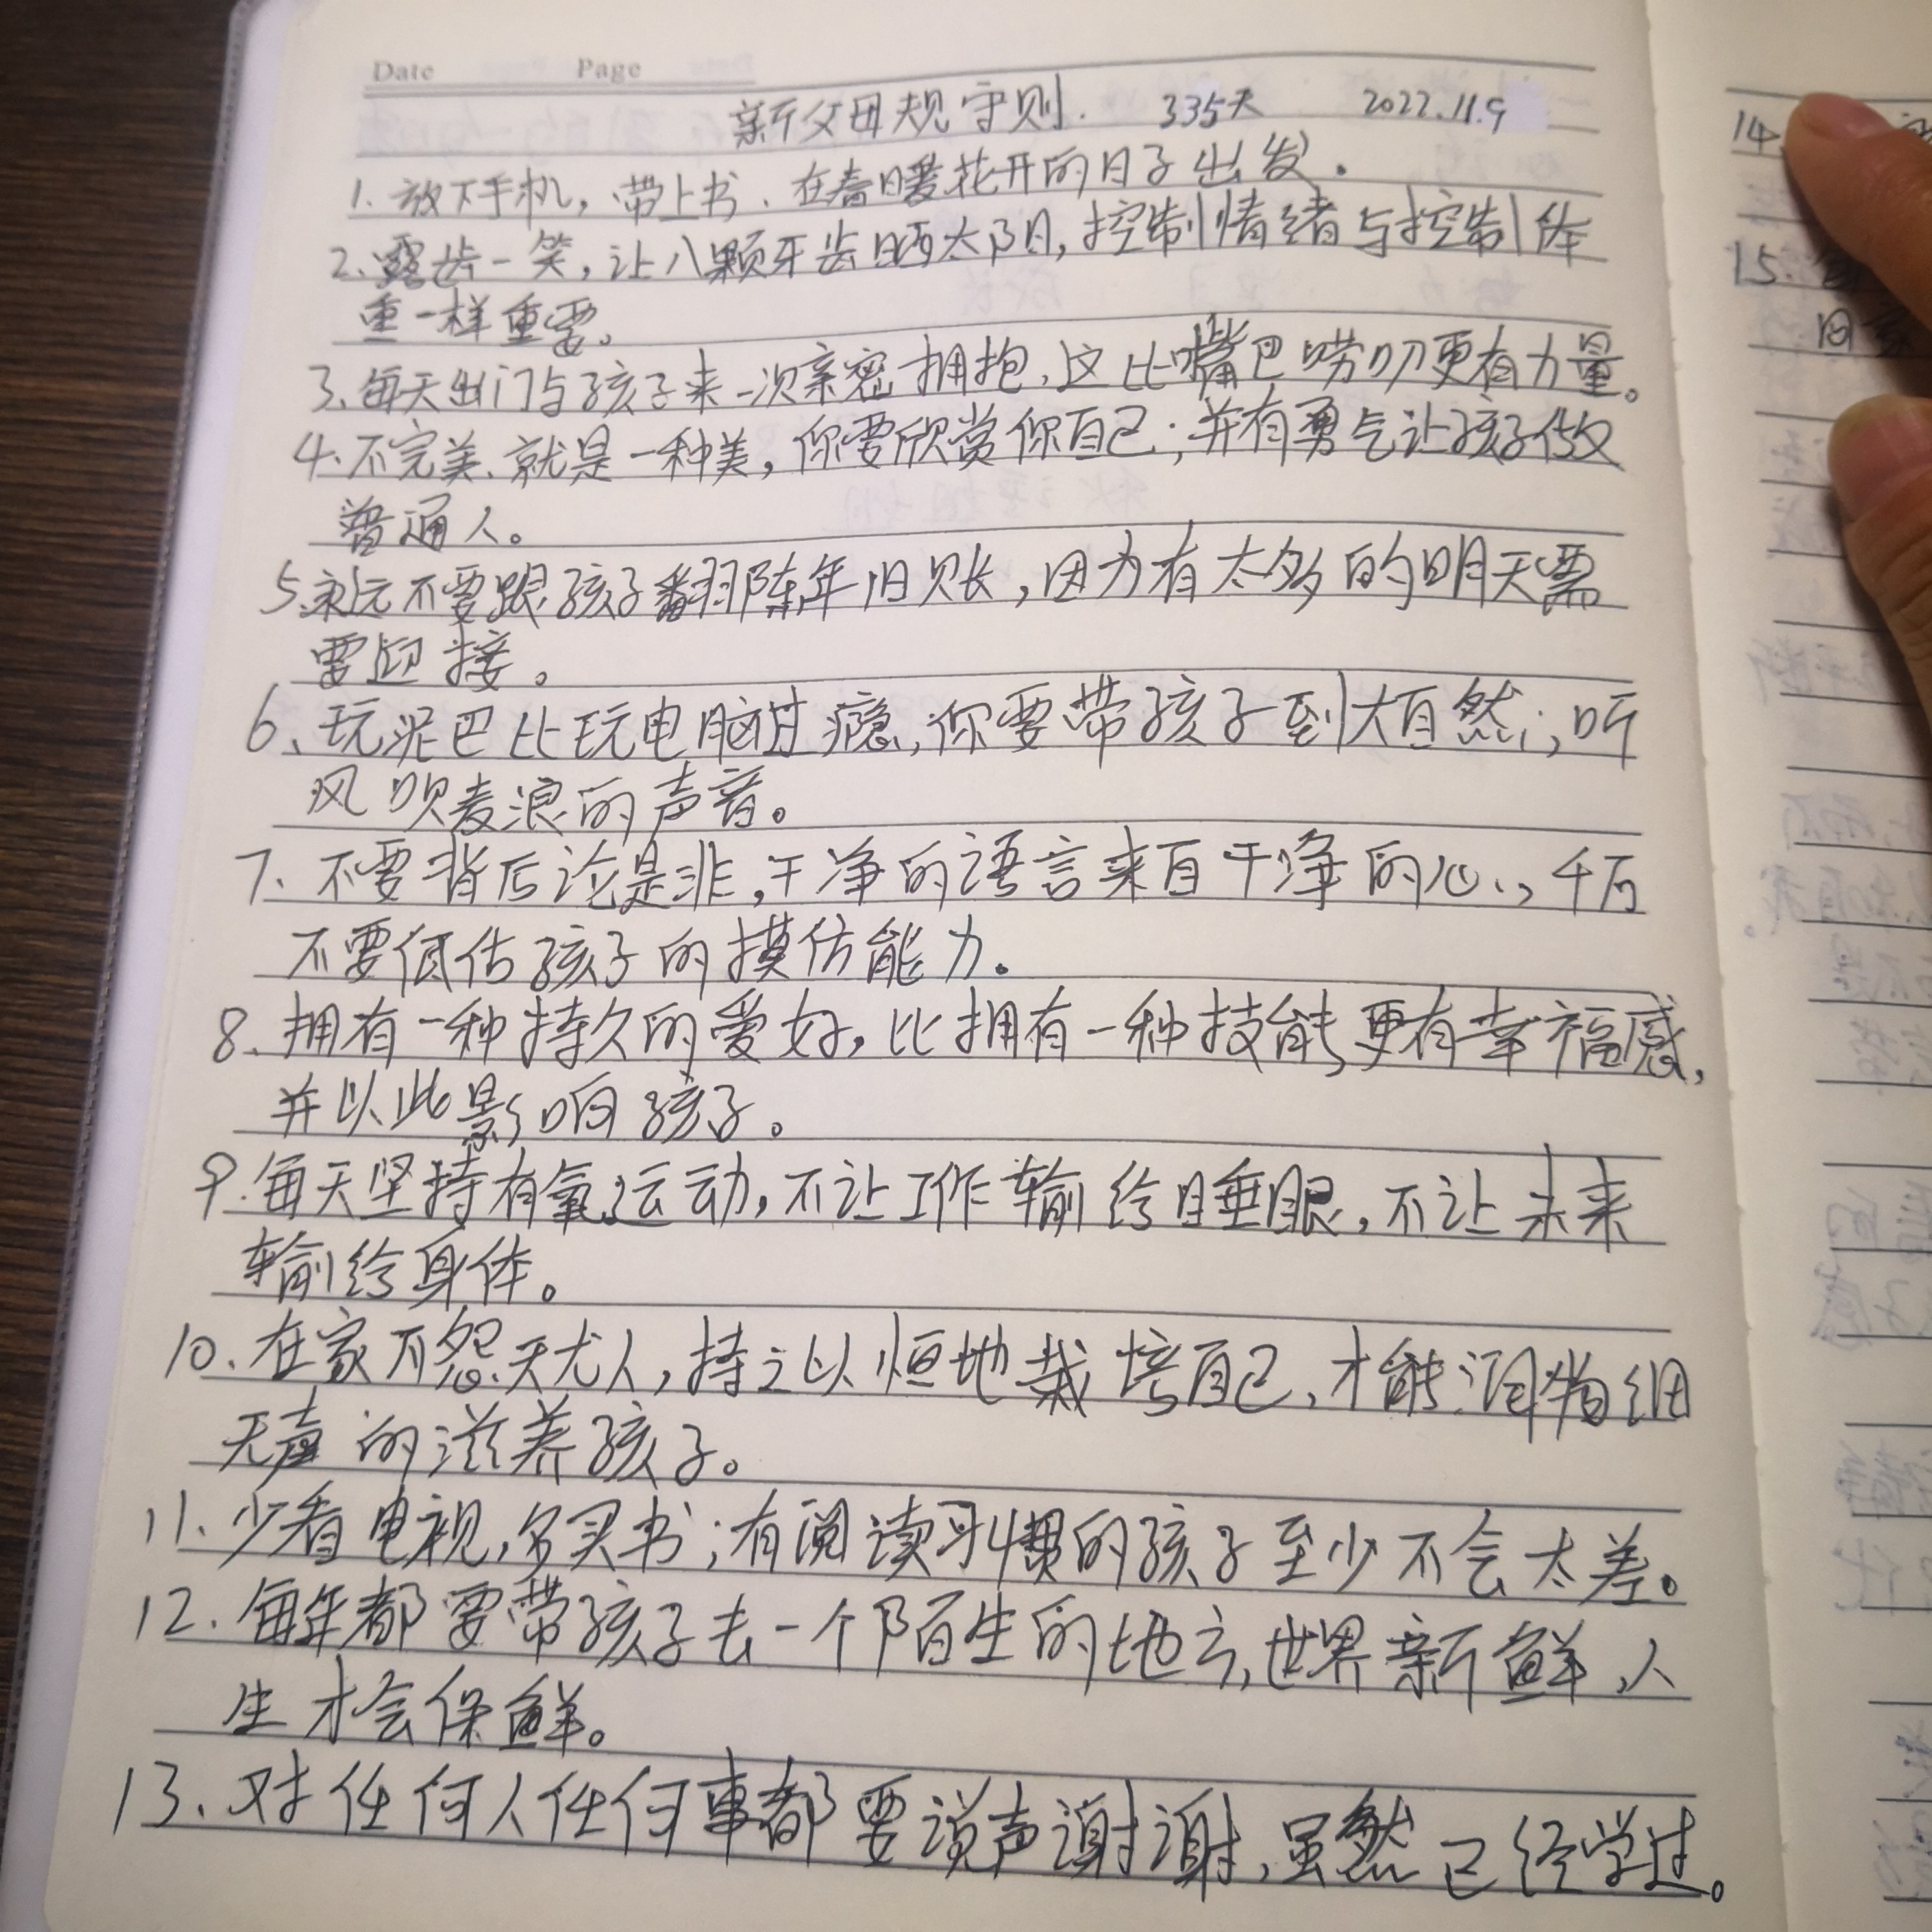 Date Page
新父母规守则. 335天 2022.11.9
1. 放下手机，带上书、在春暖花开的日子出发.
2.露齿一笑，让八颗牙齿晒太阳，控制情绪与控制体
重一样重要。
3、每天出门与孩子来一次亲密拥抱，这比嘴巴唠叨更有力量。
4、不完美、就是一种美，你要欣赏你自己；并有勇气让孩子做
普通人。
5.永远不要跟孩子翻陈年旧账，因为有太多的明天需
要迎接。
6、玩泥巴比玩电脑过瘾，你要带孩子到大自然；听
风吹麦浪的声音。
7、不要背后论是非，干净的语言来自干净的心，千万
不要低估孩子的摸仿能力。
8、拥有一种持久的爱好，比拥有一种技能更有幸福感，
并以此影响孩子。
9.每天坚持有氧运动，不让工作输给睡眠，不让未来
输给身体。
10、在家不怨天尤人，持之以恒地栽培自己，才能润物细
无声的滋养孩子。
11、少看电视，多买书；有阅读习惯的孩子至少不会太差。
12.每年都要带孩子去一个陌生的地方，世界新鲜，人
生才会保鲜。
13、对任何人任何事都要说声谢谢，虽然已经学过。
14
15.